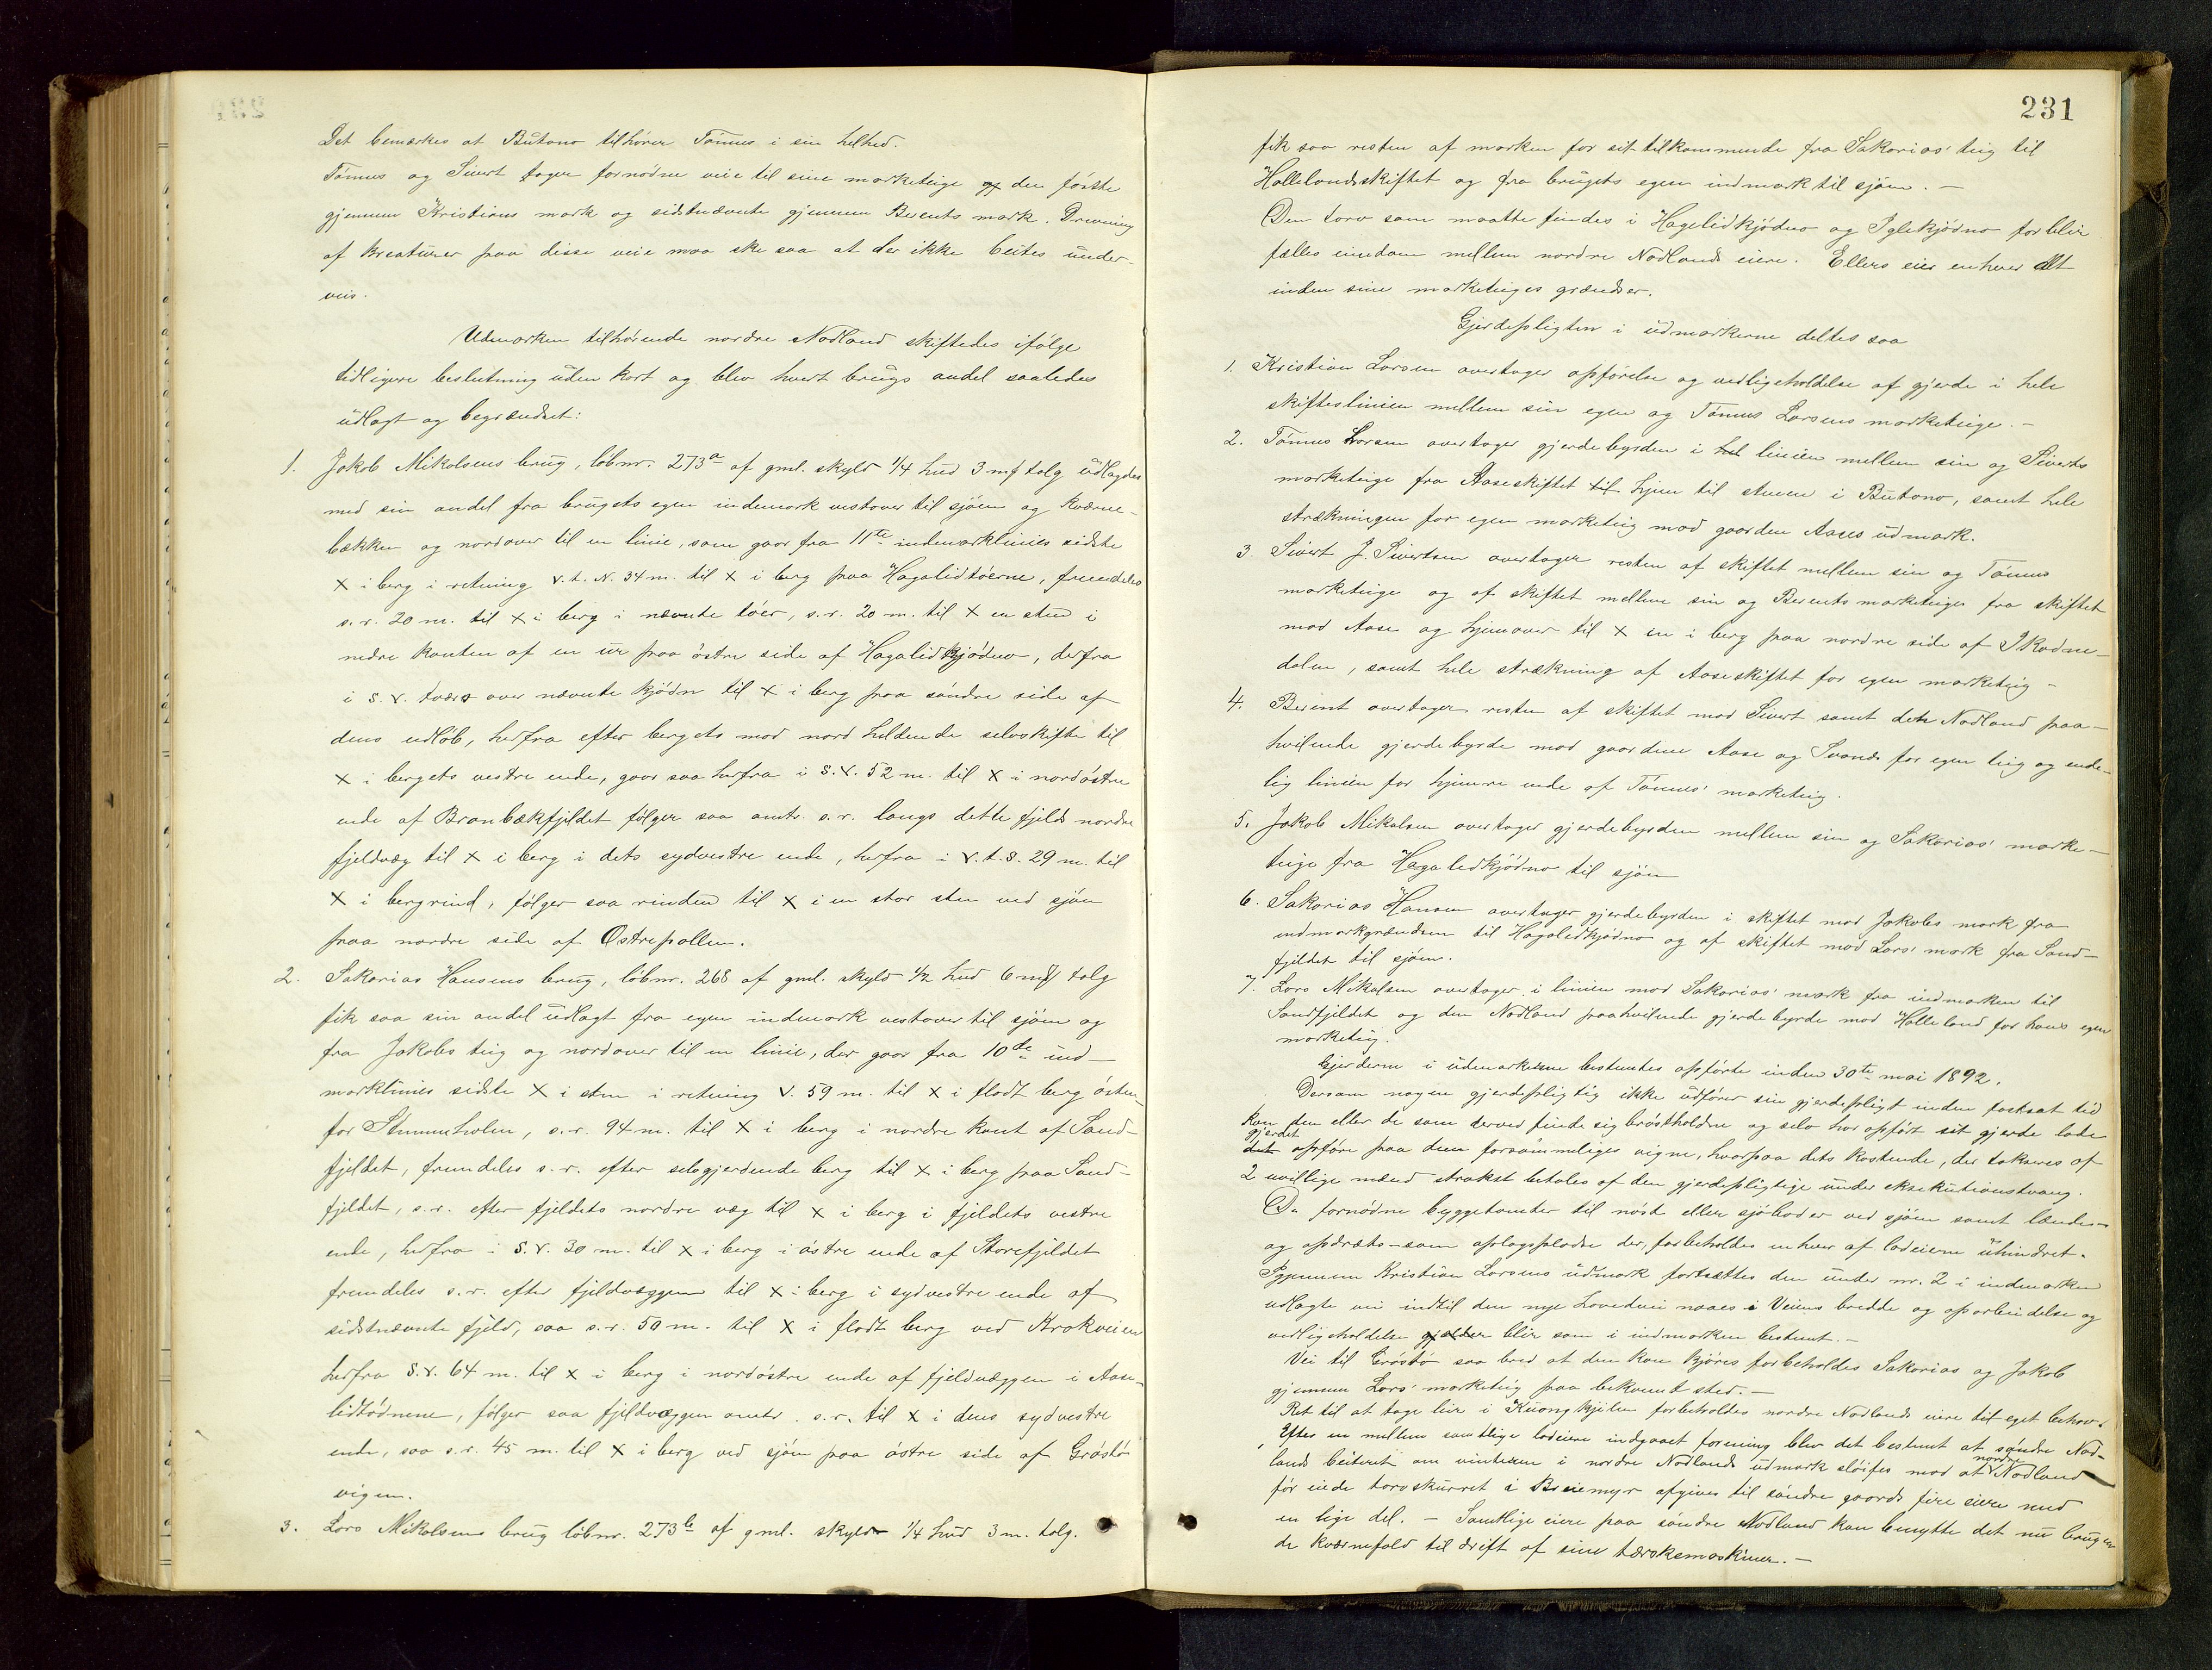 Det bemærkes at Butono tilhører Tønnes i sin helhed.
Tønnes og Sivert tager fornødne veie til sine marketeige den første
gjennem Kristians mark og sidstnævnte gjennem Berents mark. Drivning
af kreaturer paa disse veie maa ske saa at der ikke beites under-
veis.
Udmarken tilhørende nordre Nodland skiftedes ifølge
tidligere beslutning uden kort og blev hvert brugs andel saaledes
udlagt og begrændset:
1. Jakob Mikalsens brug, løbnr. 273a af gml. skyld 1/4 hud 3 mk talg udlagdes
med sin andel fra brugets egen indemark vestover til sjøen og kværne-
bækken og nordover til en linie, som gaar fra 11te indemarklinies sidste
X i berg i retning v.t.N. 34 m. til X i berg paa Hagalidtóerne, fremdeles
s.r. 20 m. til X i berg i nævnte tóer, s.r. 20 m. til X en sten i
nedre kanten af en ur paa østre side af Hagalidkjødno, derfra
i S.V. tværs over nævnte kjødn til X i berg paa søndre side af
dens udløb, herfra efter bergets mod nord heldende selvskifte til
X i bergets vestre ende, gaar saa herfra i S.V. 52 m. til X i nordøstre
ende af Branbækfjeldet følger saa omtr. s.r. langs dette fjelds nordre
fjeldvæg til X i berg i dets sydvestre ende, herfra i V.t.S. 29 m. til
X i bergrind, følger saa rinden til X i en stor sten ved sjøen
paa nordre side af Østrepollen.
2. Sakarias Hansens brug, løbnr. 268 af gml. skyld 1/2 hud 6 mk talg
fik saa sin andel udlagt fra egen indemark vestover til sjøen og
fra Jakobs teig og nordover til en linie, der gaar fra 10de ind-
marklinies sidste X i sten i retning V. 59 m. til X i fladt berg østen-
for Stemmeholen, s.r. 94 m. til X i berg i nordre kant af Sand-
fjeldet, fremdeles s.r. efter selvgjerdende berg til X i berg paa Sand-
fjeldet, s.r. efter fjeldets nordre væg til X i berg i fjeldets vestre
ende, herfra i S.V. 30 m. til X i berg i østre ende af Storefjeldet
fremdeles s.r. efter fjeldvæggen til X i berg i sydvestre ende af
sidstnævnte fjeld, saa s.r. 50 m. til X i fladt berg ved Krokveien
herfra S.V. 64 m. til X i berg i nordøstre ende af fjeldvæggen i Aase-
lidtødnene, følger saa fjeldvæggen omtr. s.r. til X i dens sydvestre
ende, saa s.r. 45 m. til X i berg ved sjøen paa østre side af Grøstø
vigen.
3. Lars Mikalsens brug løbnr. 273b af gml. skyld 1/4 hud 3 m. talg.
231
fik saa resten af marken for sit tilkommende fra Sakarias' teig til
Hallelandsskiftet og fra brugets egen indmark til sjøen. —
Den torv som maatte findes i Hagelidkjødno og Iglekjødno forblir
fælles eiendom mellem nordre Nodlands eiere. Ellers eier enhver alt
inden sine marketeiges grændser.
Gjerdepligten i udmarkerne deltes saa
1. Kristian Larsen overtager opførelse og vedligeholdelse af gjerde i hele
skifteslinien mellem sin egen og Tønnes Larsens marketeige. —
2. Tønnes Larsen overtager gjerdebyrden i hel linien mellem sin og Siverts
marketeige fra Aaseskiftet til hjem til stenen i Butono, samt hele
strækningen for egen marketeig mod gaarden Aases udmark.
3. Sivert J. Sivertsen overtager resten af skiftet mellem sin og Tønnes
marketeige og af skiftet mellem sin og Berents marketeiger fra skiftet
mod Aase og hjemover til X en i berg paa nordre side af Skadne-
dalen, samt hele strækning af Aaseskiftet for egen marketeig —
4. Berent overtager resten af skiftet mod Sivert samt den Nodland paa-
hvilende gjerdebyrde mod gaardene Aase og Svands for egen teig og ende-
lig linien for hjemre ende af Tønnes' marketeig.
5. Jakob Mikalsen overtager gjerdebyrden mellem sin og Sakarias' marke-
teige fra Hagalidkjødno til sjøen
6. Sakarias Hansen overtager gjerdebyrden i skiftet mod Jakobs mark fra
indmarkgrændsen til Hagalidkjødno og af skiftet mod Lars' mark fra Sand-
fjeldet til sjøen.
7. Lars Mikalsen overtager i linien mod Sakarias' mark fra indmarken til
Sandfjeldet og den Nodland paahvilende gjerdebyrde mod Halleland for hans egen
marketeig.
Gjerderne i udemarkerne bestemtes opførte inden 30te mai 1892.
Dersom nogen gjerdepligtig ikke udfører sin gjerdepligt inden fastsat tid
kan den eller de som derved finde sig brøstholdne og selv har opført sit gjerde lade
gjerdet
det opføre paa den forsømmeliges vegne, hvorpaa dets kostende, der takseres af
2 uvillige mænd strakst betales af den gjerdepligtige under eksekutionstvang.
De fornødne byggetomter til nøst eller sjøboder ved sjøen samt landes-
og opdræts- som oplagspladse der, forbeholdes enhver af lodeierne uhindret.
Igjennem Kristian Larsens udmark fortsættes den under nr. 2 i indemarken
udlagte vei indtil den nye hovedvei naaes i Veiens bredde og oparbeidelse og
vedligeholdelse gjælder blir som i indmarken bestemt. —
Vei til Grøstø saa bred at den kan kjøres forbeholdes Sakarias og Jakob
gjennem Lars' marketeig paa bekvemt sted. —
Ret til at tage leir i Kuongkjilen forbeholdes nordre Nodlands eiere til eget behov.
Efter en mellem samtlige lodeiere indgaaet forening blev det bestemt at søndre Nod-
nordre
lands beiteret om vinteren i nordre Nodlands udmark sløifes mod at Nodland
før eiede torvskurret i Breiemyr afgives til søndre gaards fire eiere med
en lige del. — Samtlige eiere paa søndre Nodland kan benytte det nu brugen
de kværnefald til drift af sine tærskemaskiner. —